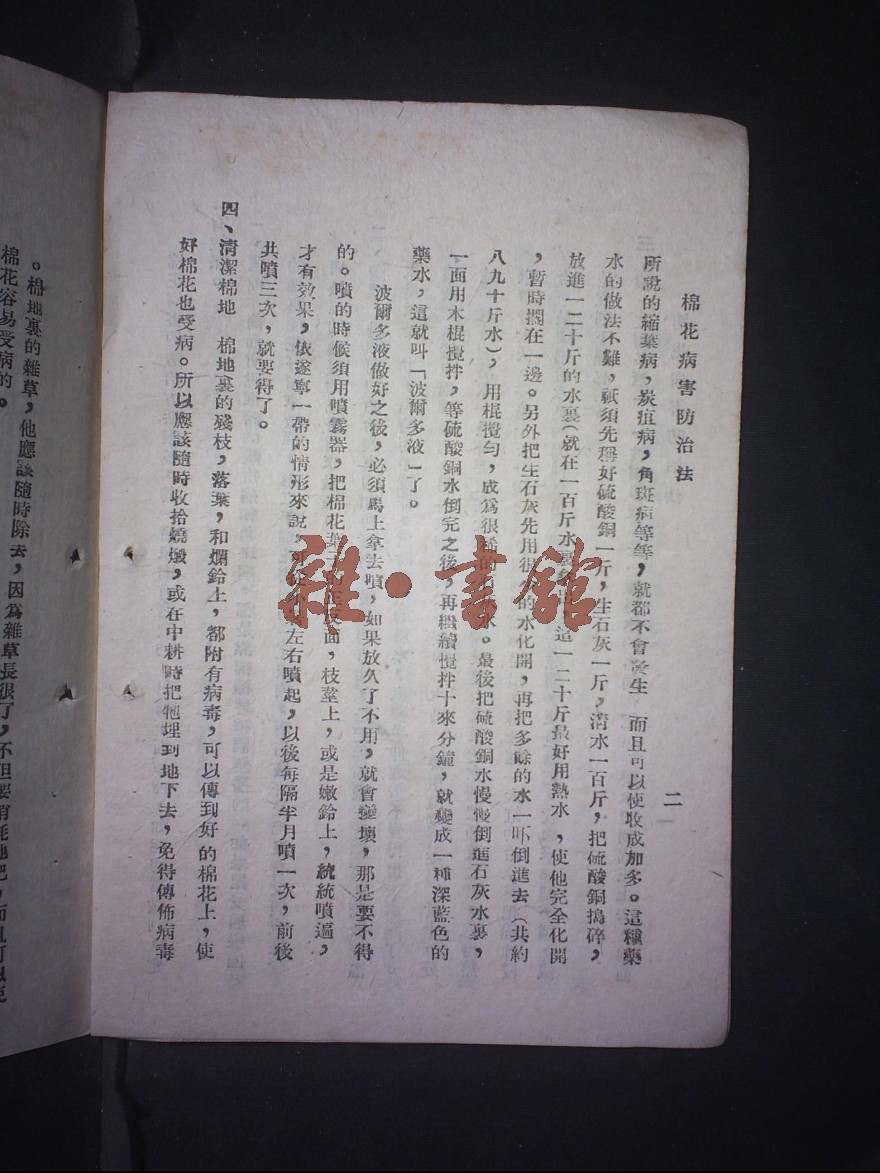 棉花病害防治法
二
所說的縮葉病，炭疽病，角斑病等等，就都不會發生 而且可以使收成加多。這種藥
水的做法不難，祇須先稱好硫酸銅一斤，生石灰一斤，清水一百斤，把硫酸銅搗碎，
放進一二十斤的水裏（就在一百斤水裏 這一二十斤最好用熱水，使他完全化開
，暫時擱在一邊。另外把生石灰先用很 的水化開，再把多餘的水一吓倒進去（共約
八九十斤水），用棍攪勻，成爲很稀的 水。最後把硫酸銅水慢慢倒進石灰水裏，
一面用木棍攪拌，等硫酸銅水倒完之後，再繼續攪拌十來分鐘，就變成一種深藍色的
藥水，這就叫「波爾多液」了。
波爾多液做好之後，必須馬上拿去噴，如果放久了不用，就會變壞，那是要不得
的。噴的時候須用噴霧器，把棉花葉 面，枝莖上，或是嫩鈴上，統統噴遍，
才有效果，依遂寧一帶的情形來說， 左右噴起，以後每隔半月噴一次，前後
共噴三次，就要得了。
四、清潔棉地 棉地裏的殘枝，落葉，和爛鈴上，都附有病毒，可以傳到好的棉花上，使
好棉花也受病。所以應該隨時收拾燒燬，或在中耕時把牠埋到地下去，免得傳佈病毒
。棉地裏的雜草，他應該隨時除去，因爲雜草長很了，不但要消耗地肥，而且可以使
棉花容易受病的。
雜·書館